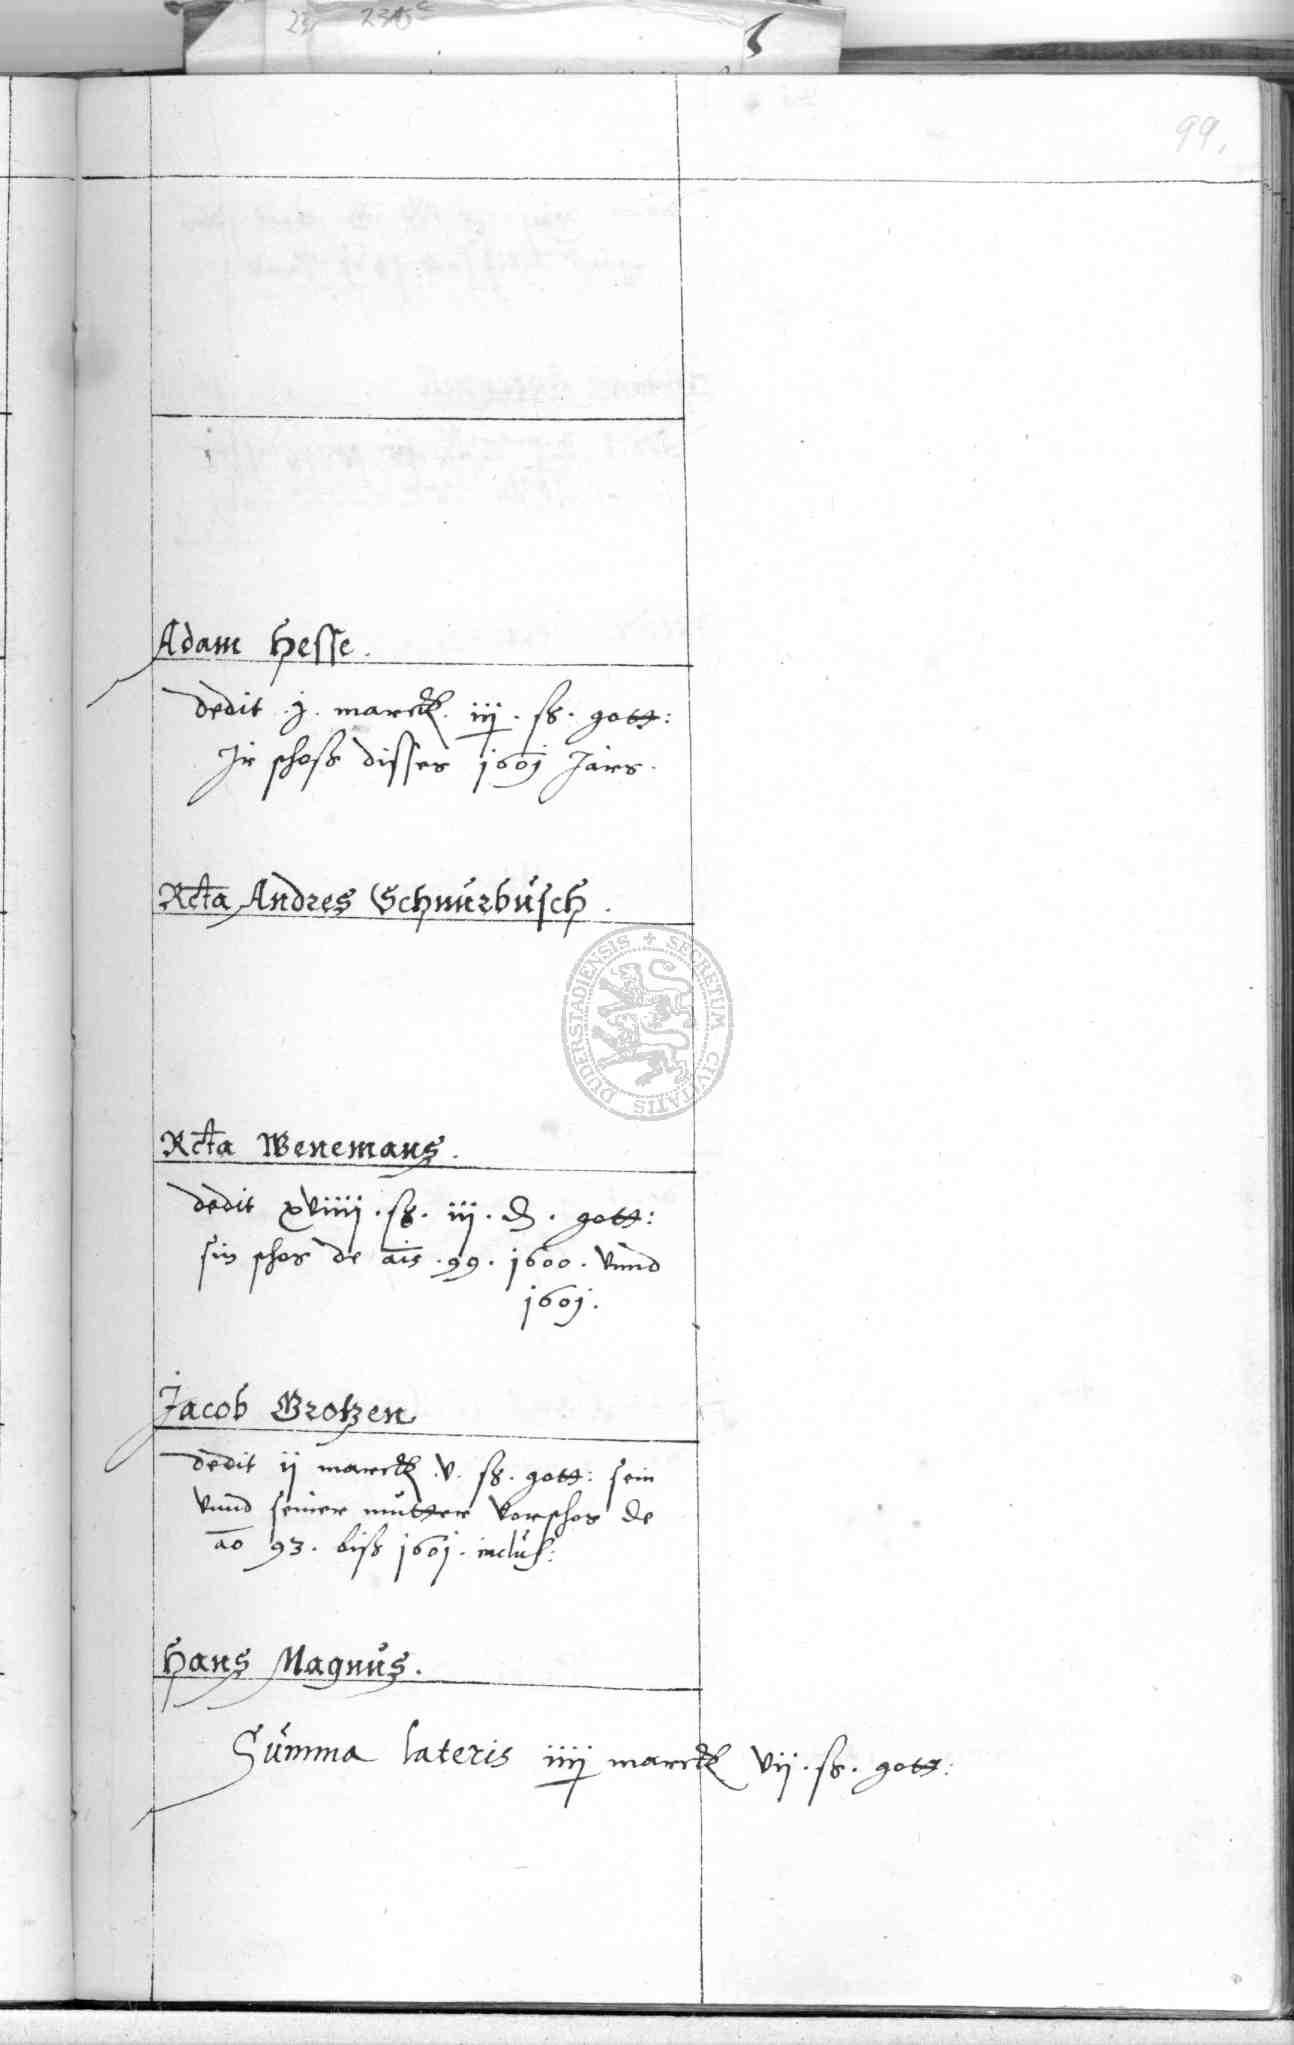 99.
Adam Hesse.
dedit .j. marck. iij. ß. gott:
Ir schoß disses 1601 Jars.
Rcta Andres Schnurbusch.
Rcta Wenemans.
dedit xviiij. ß. iii. d. gott:
sin schos de ais. 99. 1600. vnnd
1601.
Jacob Grotzen
dedit ij marck .v. ß. gott: sein
vnnd seiner mutter vorschos de
ao 93. biß 1601. inclus:
Hans Magnus.
Summa lateris iiij marck vij. ß. gott:
SECRETUM CIVITATIS DUDERSTADIENSIS